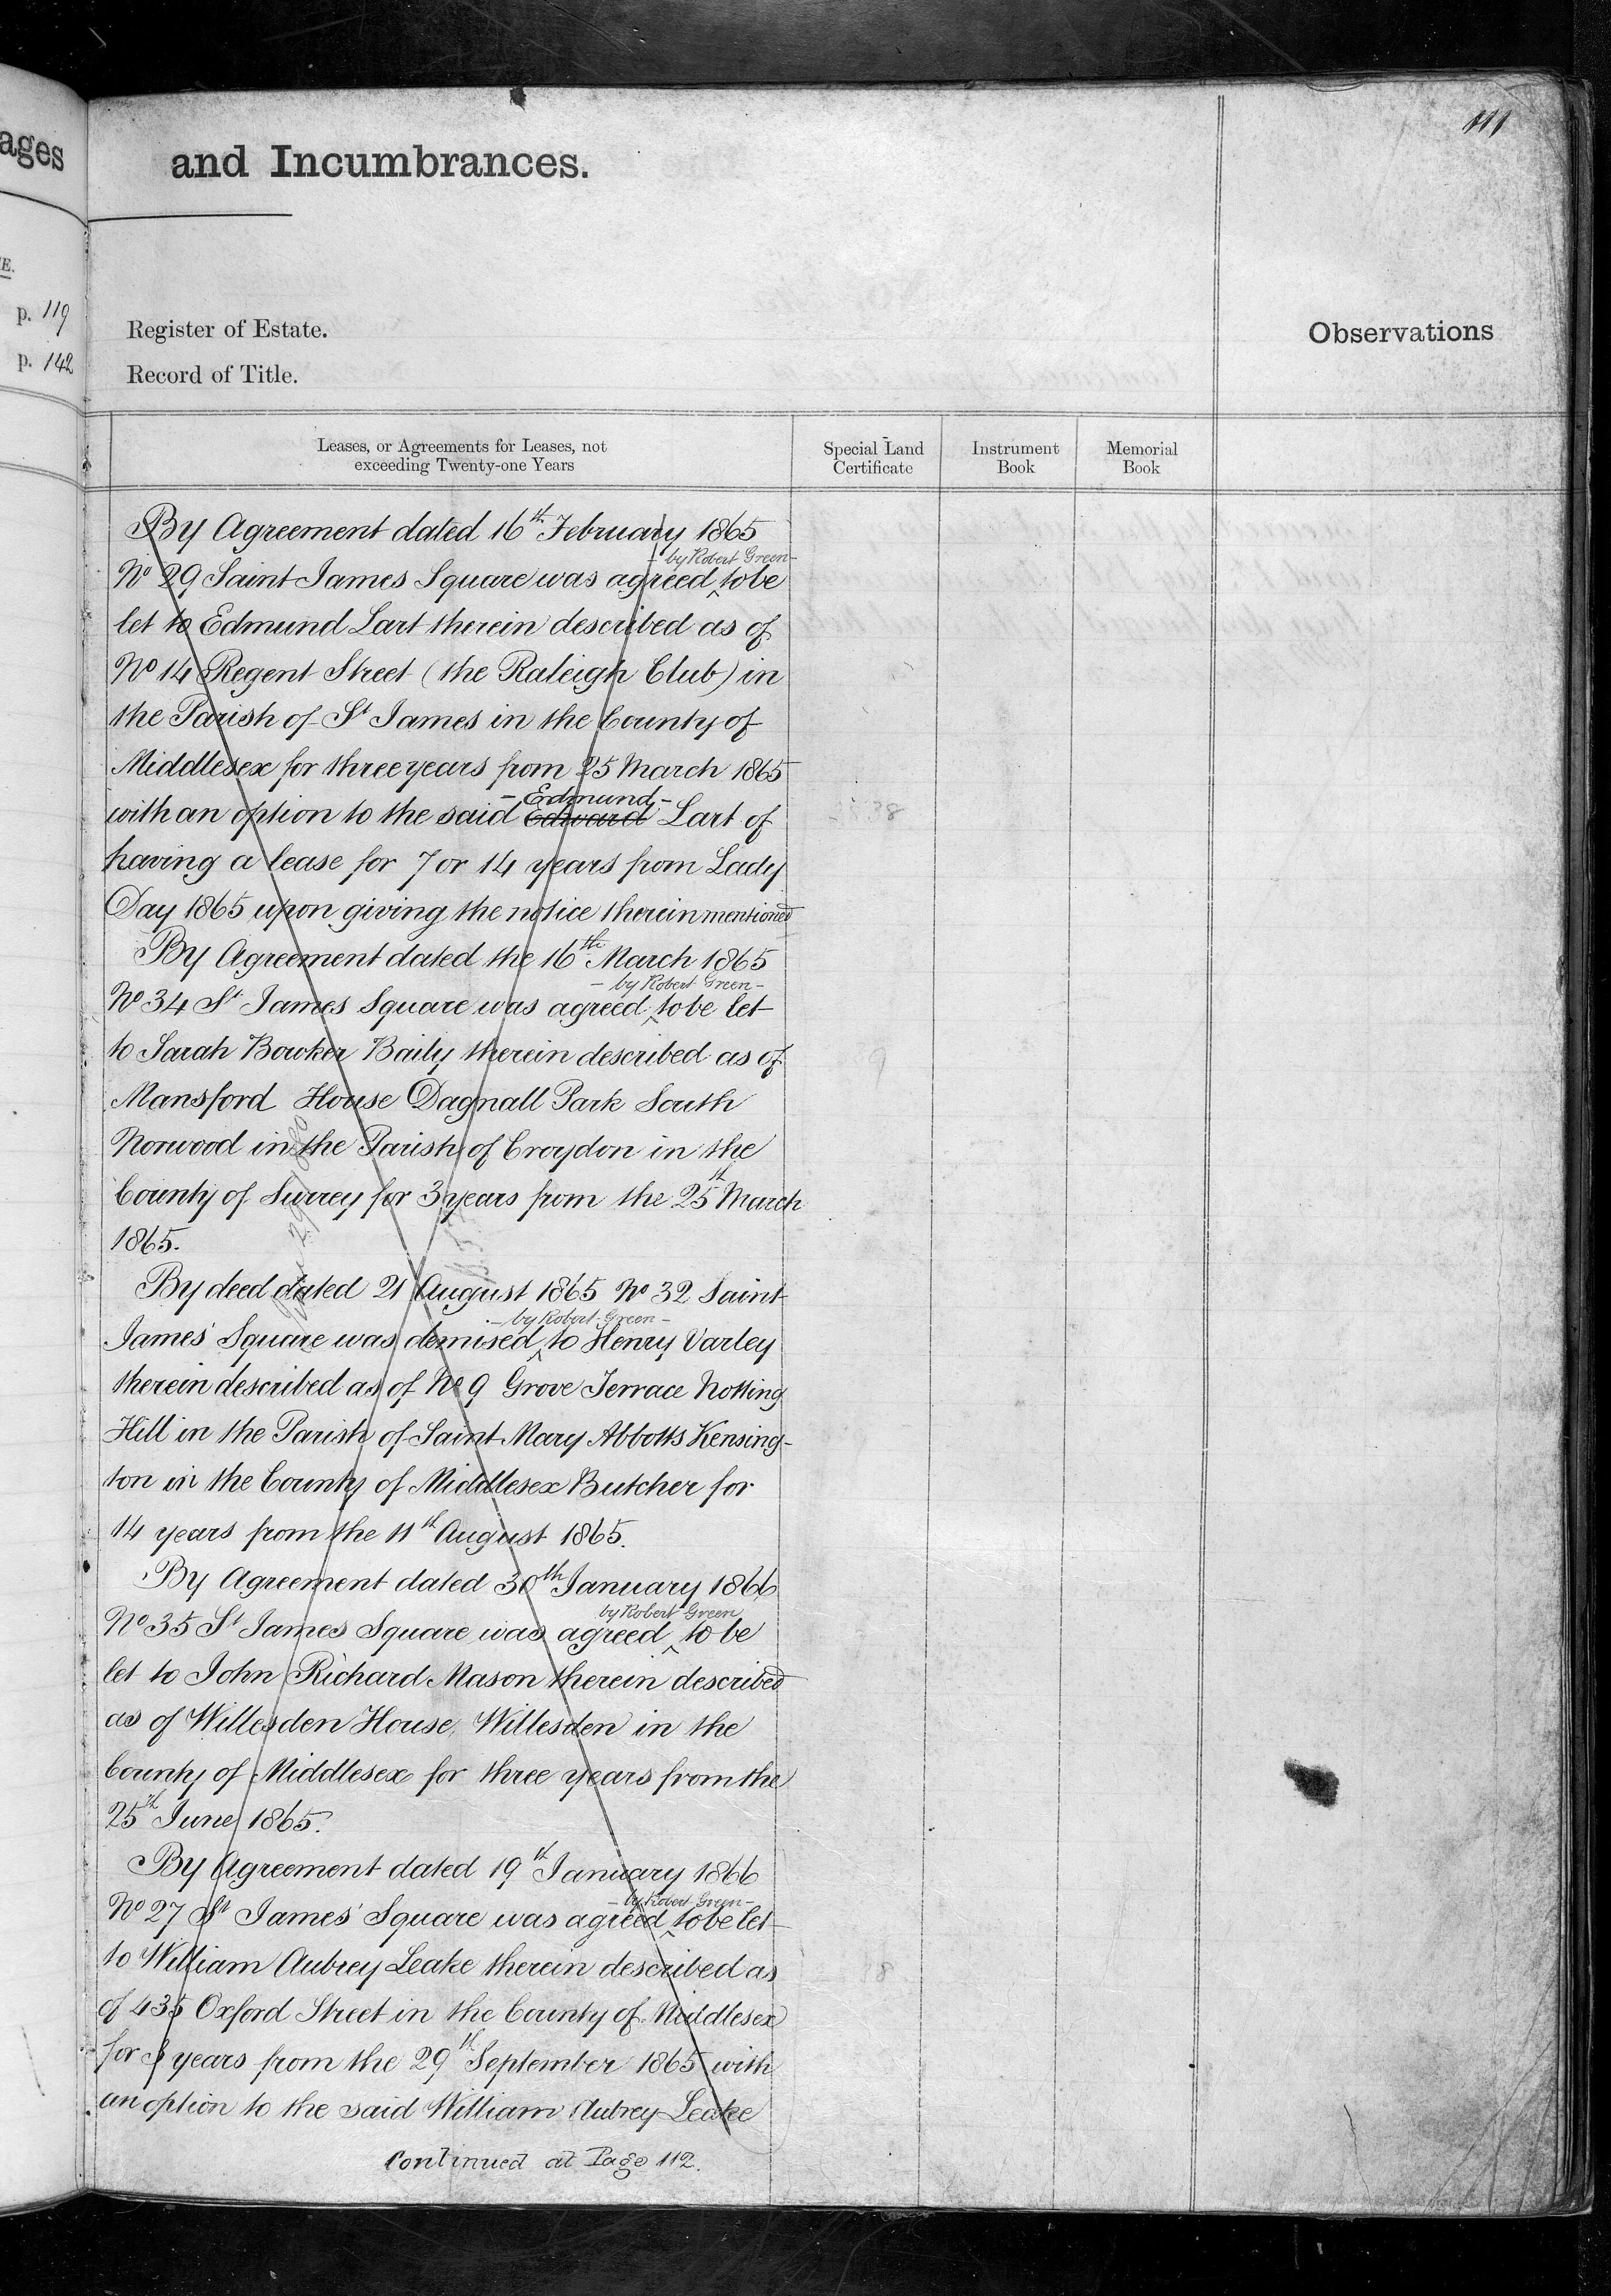 111
ages
and Incumbrances.
E.
p. 119
p. 142
Register of Estate.
Record of Title.
Observations
Leases, or Agreements for Leases, not
exceeding Twenty-one Years
Special Land
Certificate
Instrument
Book
Memorial
Book
By Agreement dated 16th February 1865
- by Robert Green -
No 29 Saint James Square was agreed ^ to be
let to Edmund Lart therein described as of
No 14 Regent Street (the Raleigh Club) in
the Parish of St James in the County of
Middlesex for three years from 25 March 1865
- Edmund -
with an option to the said Edward Lart of
having a lease for 7 or 14 years from Lady
Day 1865 upon giving the notice therein mentioned
By Agreement dated the 16th March 1865
- by Robert Green -
No 34 St James Square was agreed ^ to be let
to Sarah Bowker Baily therein described as of
Mansford House Dagnall Park South
Norwood in the Parish of Croydon in the
County of Surrey for 3 years from the 25th March
1865.
By deed dated 21 August 1865 No 32 Saint
- by Robert Green -
James' Square was demised ^ to Henry Varley
therein described as of No 9 Grove Terrace Notting
Hill in the Parish of Saint Mary Abbotts Kensing-
ton in the County of Middlesex Butcher for
14 years from the 11th August 1865.
By Agreement dated 30th January 1866
by Robert Green
No 35 St James Square was agreed ^ to be
let to John Richard Mason therein described
as of Willesden House, Willesden in the
County of Middlesex for three years from the
25th June 1865.
By Agreement dated 19th January 1866
- by Robert Green -
No 27 St James' Square was agreed ^ to be let
to William Aubrey Leake therein described as
of 435 Oxford Street in the County of Middlesex
for 3 years from the 29th September 1865 with
an option to the said William Aubrey Leake
Continued at Page 112.